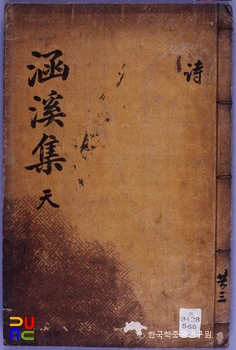 涵溪集 天
詩
共三
한국학중앙연구원